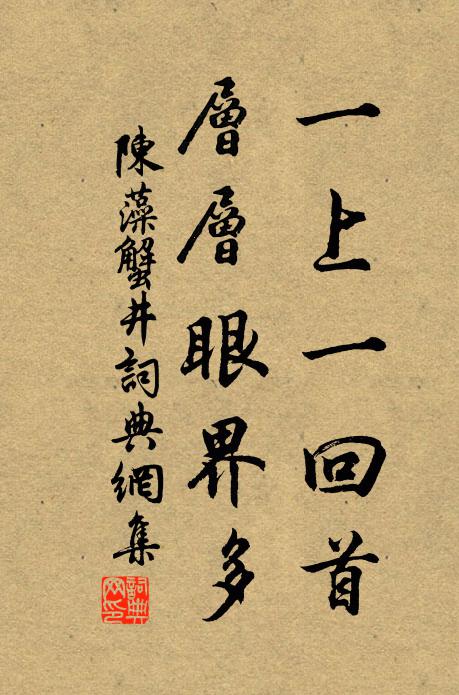 一上一回首
層層眼界多
陳藻蟹井詞典網集
詞典网印